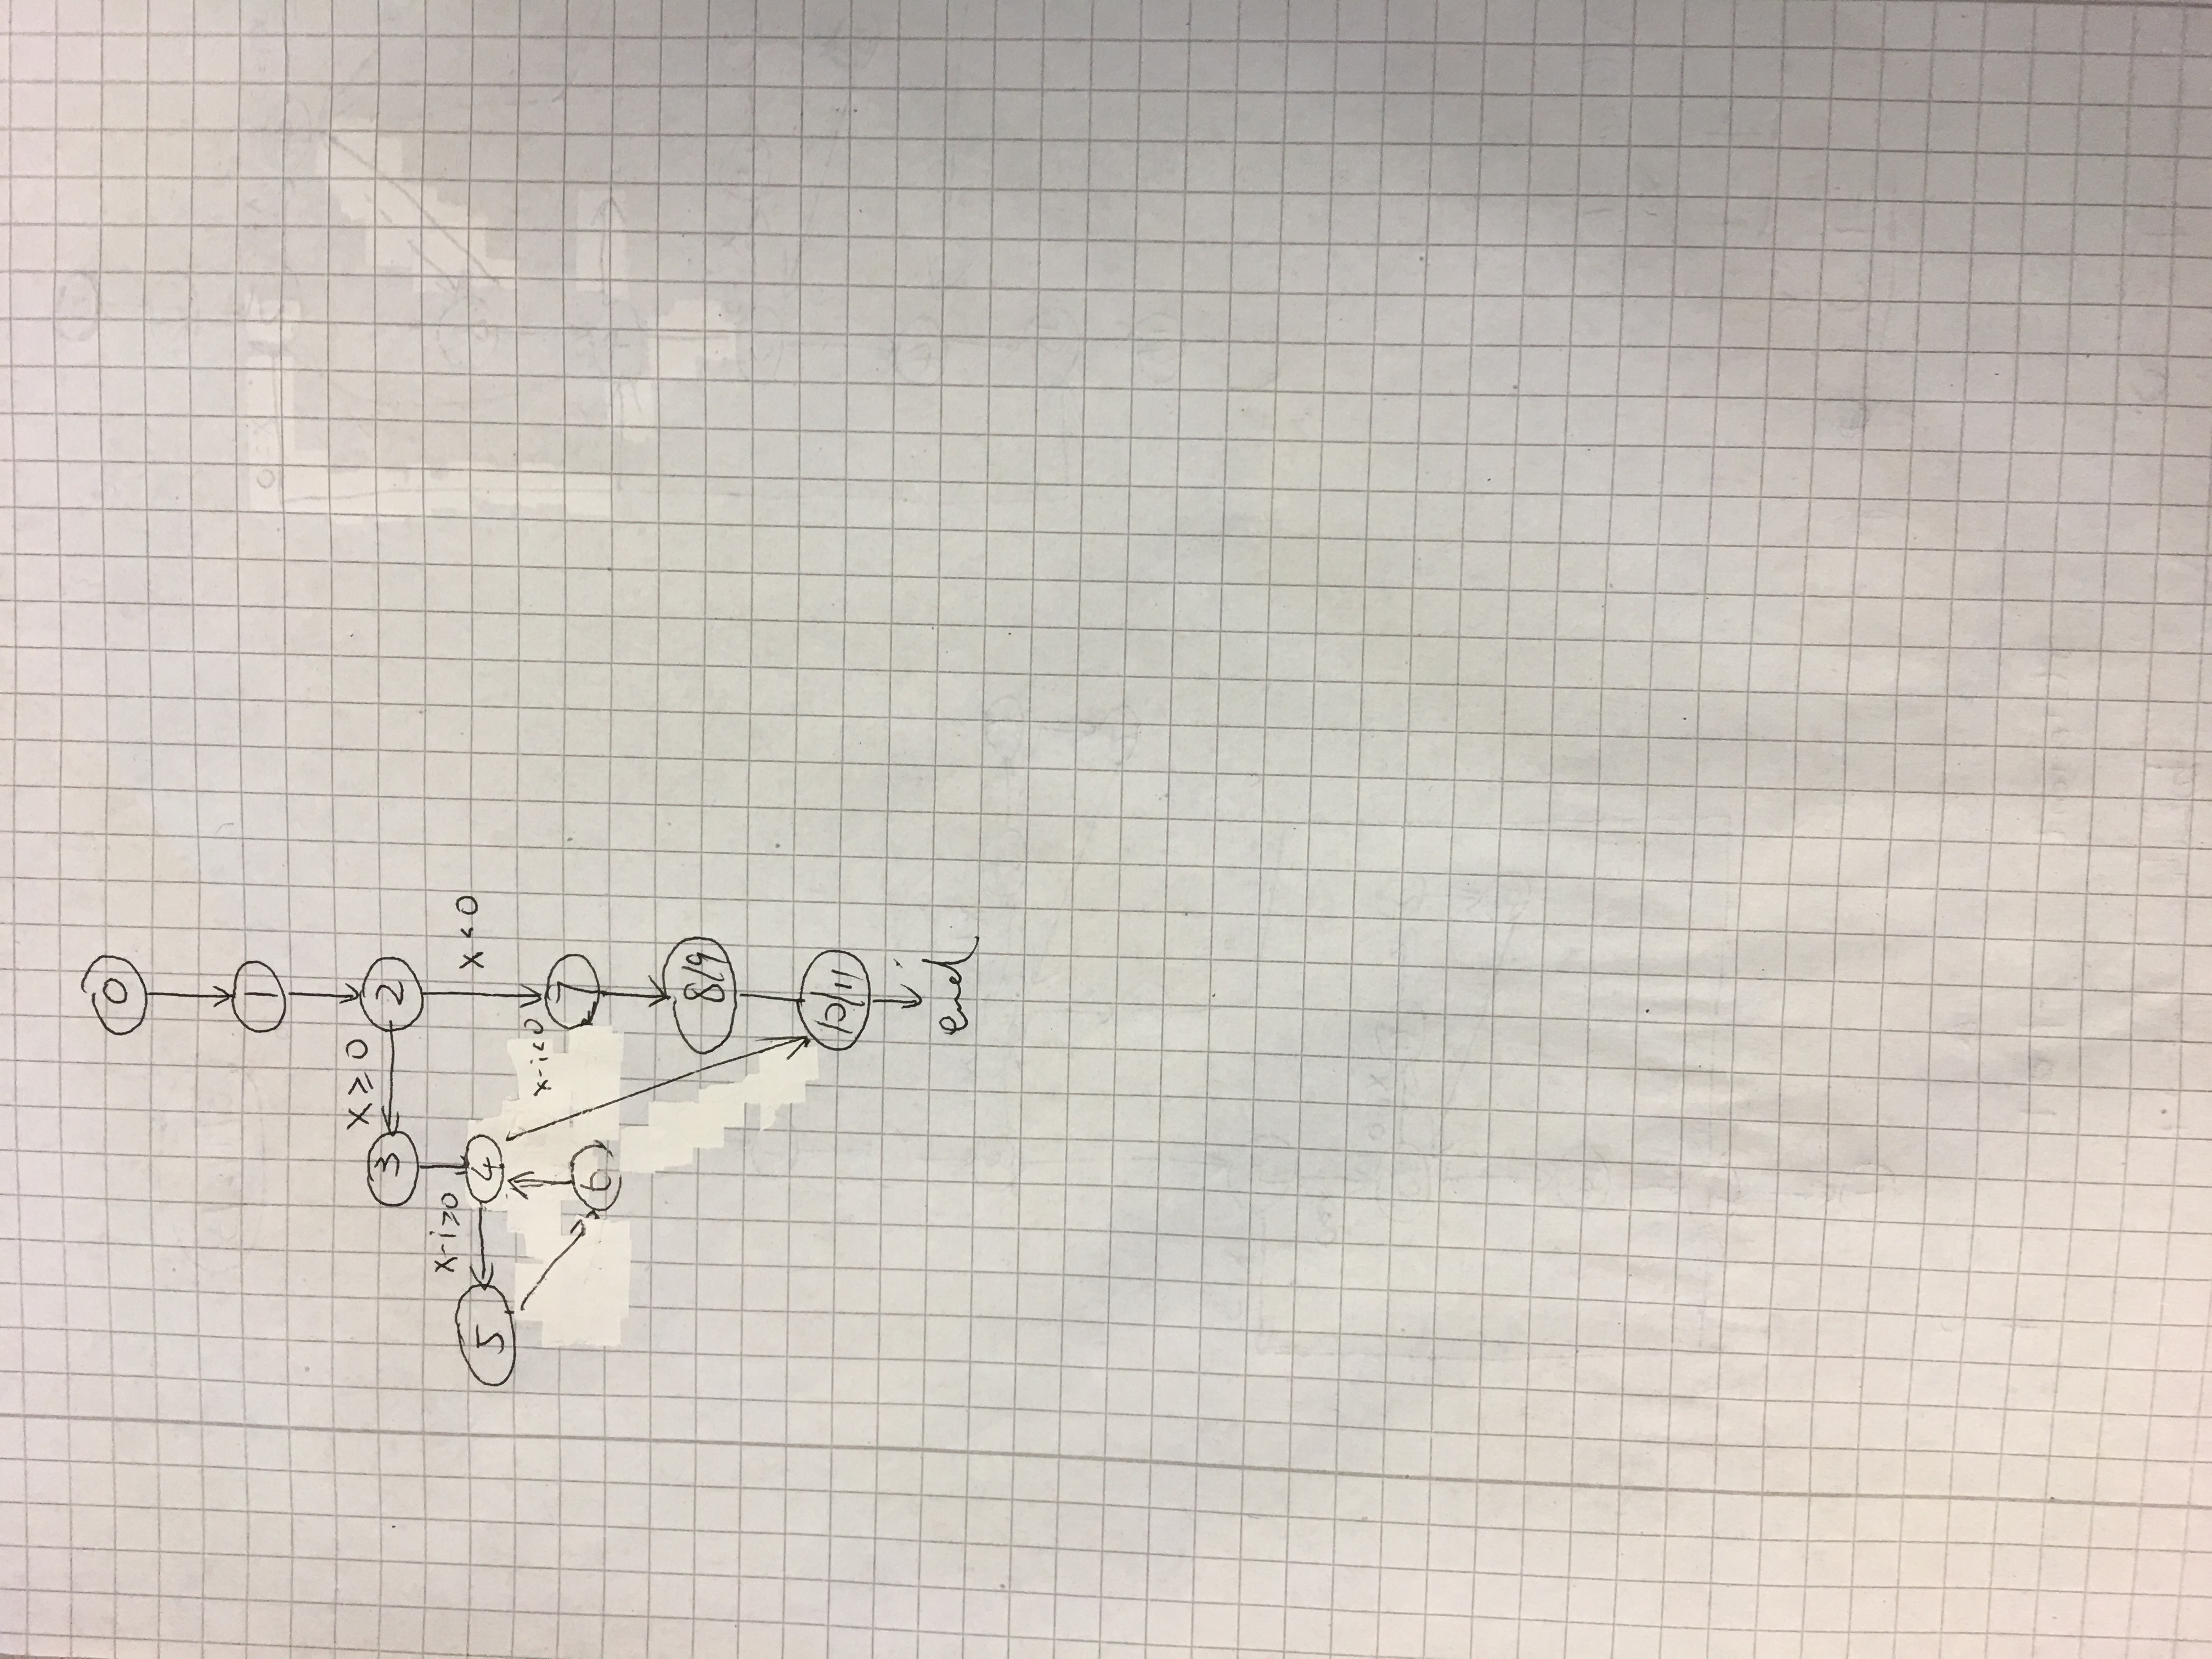 0
1
x ≥ 0
3
2
x-i≥0
x < 0
5
4
x-i<0
7
6
8/9
10/11
end